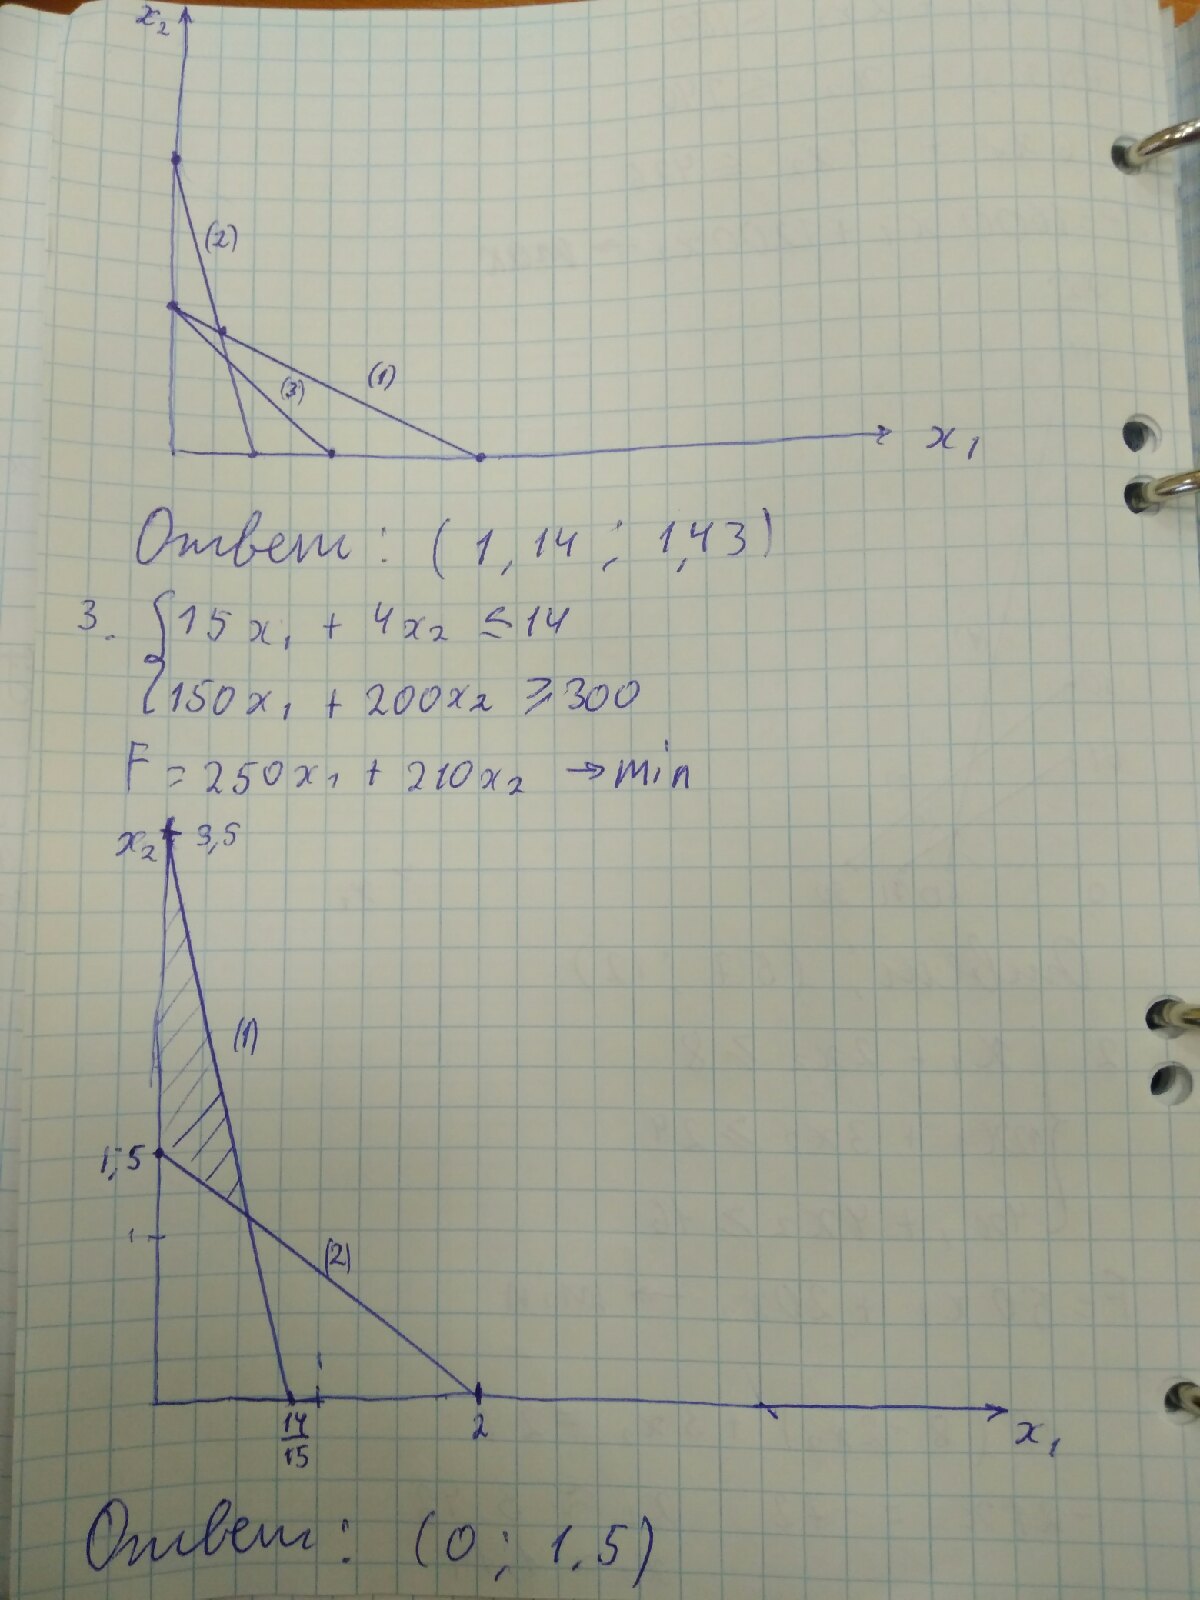 x₂
(2)
(3)
(1)
x₁
Ответ: (1,14 ; 1,43)
3. {15x₁ + 4x₂ ≤ 14
{150x₁ + 200x₂ ≥ 300
F = 250x₁ + 210x₂ → min
x₂ 3,5
(1)
1,5
1
(2)
1
14/15
2
x₁
Ответ: (0; 1,5)